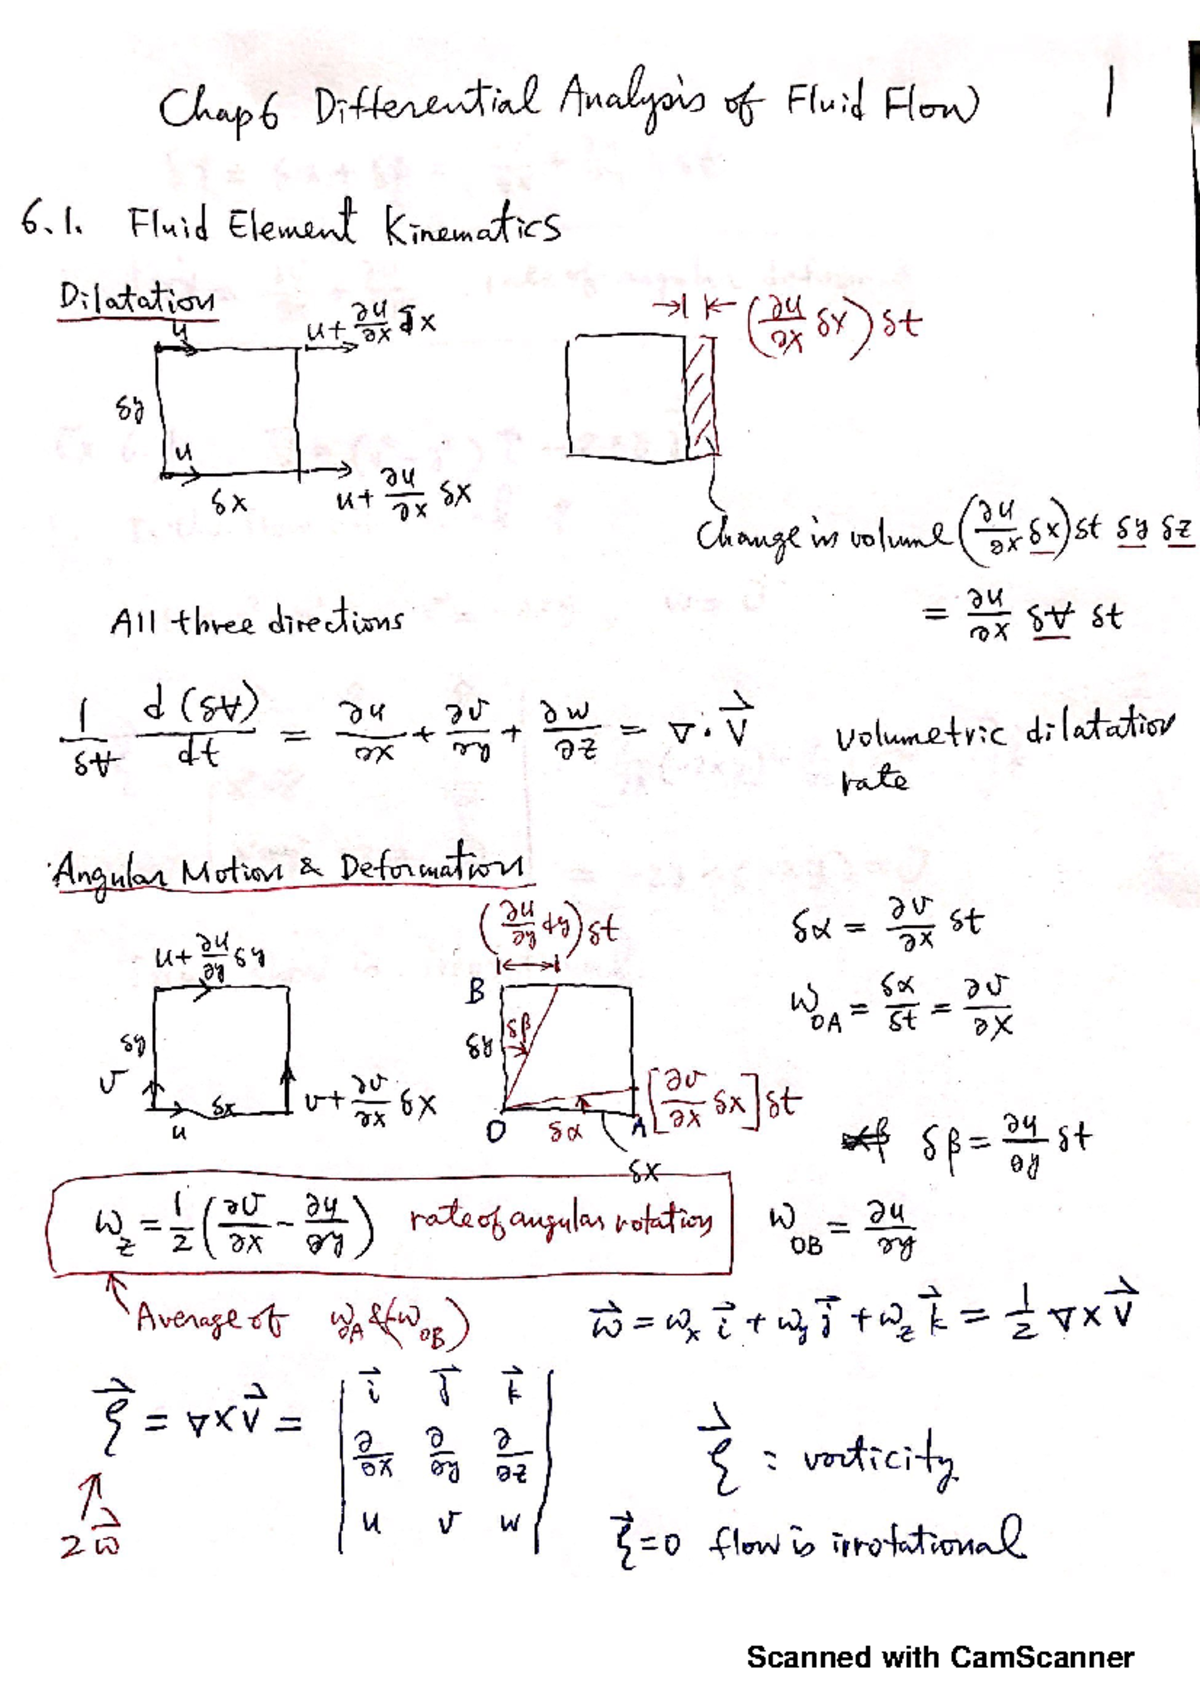 Chap 6 Differential Analysis of Fluid Flow 1
6.1. Fluid Element Kinematics
Dilatation
u u + ∂u/∂x δx
δy
u
δx u + ∂u/∂x δx
(∂u/∂x δx) δt
Change in volume (∂u/∂x δx) δt δy δz
= ∂u/∂x δV̶ δt
All three directions
1/δV̶ d(δV̶)/dt = ∂u/∂x + ∂v/∂y + ∂w/∂z = ∇·V⃗ volumetric dilatation
rate
Angular Motion & Deformation
u + ∂u/∂y δy
δy
v
δx
u
v + ∂v/∂x δx
(∂u/∂y dy) δt
B
δy δβ
[∂v/∂x δx] δt
O δα A
δx
δα = ∂v/∂x δt
ω_OA = δα/δt = ∂v/∂x
δβ = ∂u/∂y δt
ω_OB = ∂u/∂y
ω_z = 1/2 (∂v/∂x - ∂u/∂y) rate of angular rotation
Average of ω_OA & (-ω_OB)
ω⃗ = ω_x i⃗ + ω_y j⃗ + ω_z k⃗ = 1/2 ∇×V⃗
ξ⃗ = ∇×V⃗ = | i⃗ j⃗ k⃗ |
| ∂/∂x ∂/∂y ∂/∂z |
| u v w |
2ω⃗
ξ⃗ : vorticity
ξ⃗ = 0 flow is irrotational
Scanned with CamScanner